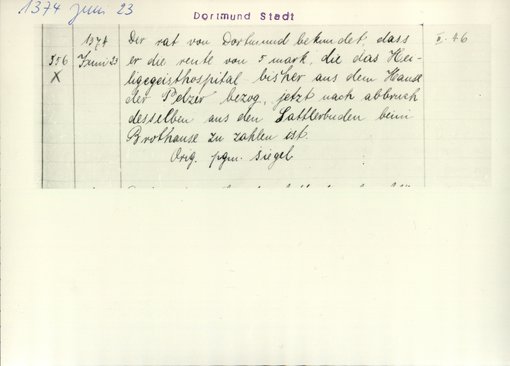 1374 Juni 23
Dortmund Stadt
1374 Der rat von Dortmund bekundet, dass II. 46
356 Juni 23 er die rente von 5 mark, die das Hei-
X ligegeisthospital bisher aus dem Hause
der Pelzer bezog, jetzt nach abbruch
desselben aus den Sattlerbuden beim
Brothause zu zahlen ist.
Orig. pgm. siegel